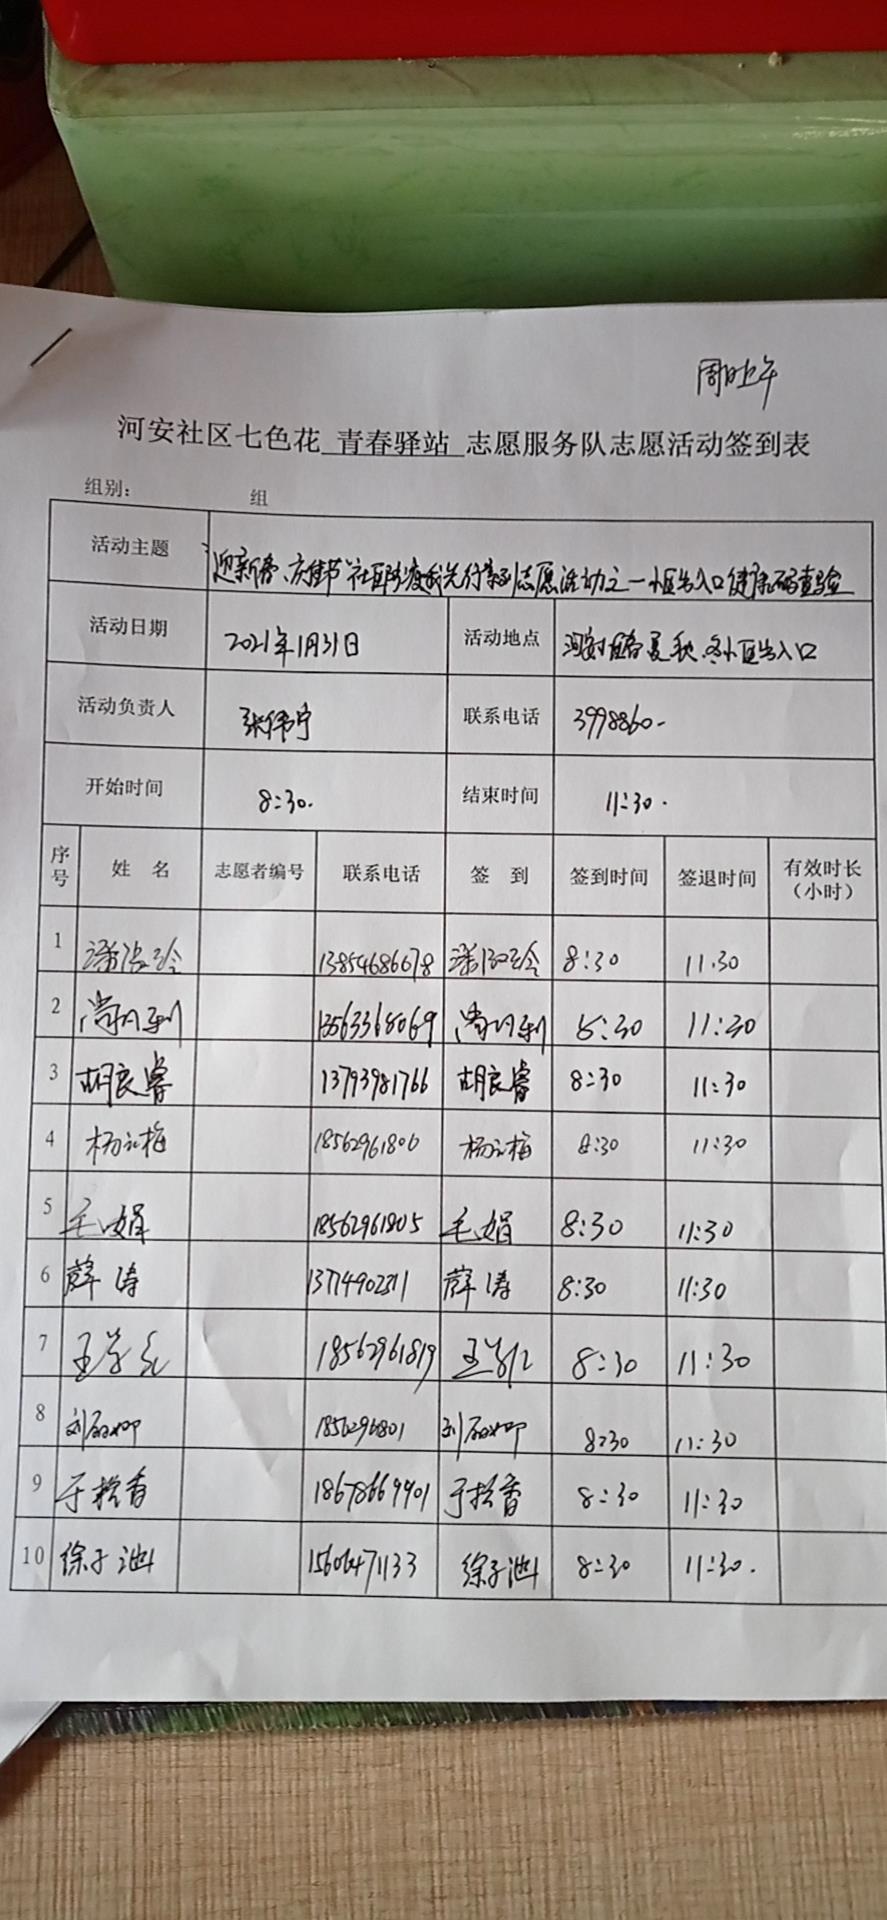 周日上午
河安社区七色花 青春驿站 志愿服务队志愿活动签到表
组别： 组
活动主题 迎新春、庆佳节"社区防疫我先行系列志愿活动之一小区出入口健康码查验
活动日期 2021年1月31日 活动地点 春夏秋、冬小区出入口
活动负责人 张伟宁 联系电话 3998860.
开始时间 8:30. 结束时间 11:30.
序号 姓 名 志愿者编号 联系电话 签 到 签到时间 签退时间 有效时长（小时）
1 13854686678 8:30 11.30
2 13563368069 8:30 11:30
3 胡良睿 13793981766 胡良睿 8:30 11:30
4 18562961806 8:30 11:30
5 毛娟 18562961805 毛娟 8:30 11:30
6 薛涛 薛涛 8:30 11:30
7 18562961819 8:30 11:30
8 8:30 11:30
9 于桂香 18678669901 于桂香 8:30 11:30
10 徐子池 15606471133 徐子池 8:30 11:30.